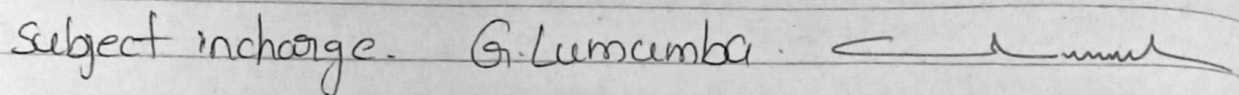 Subject incharge. G. Lumumba.